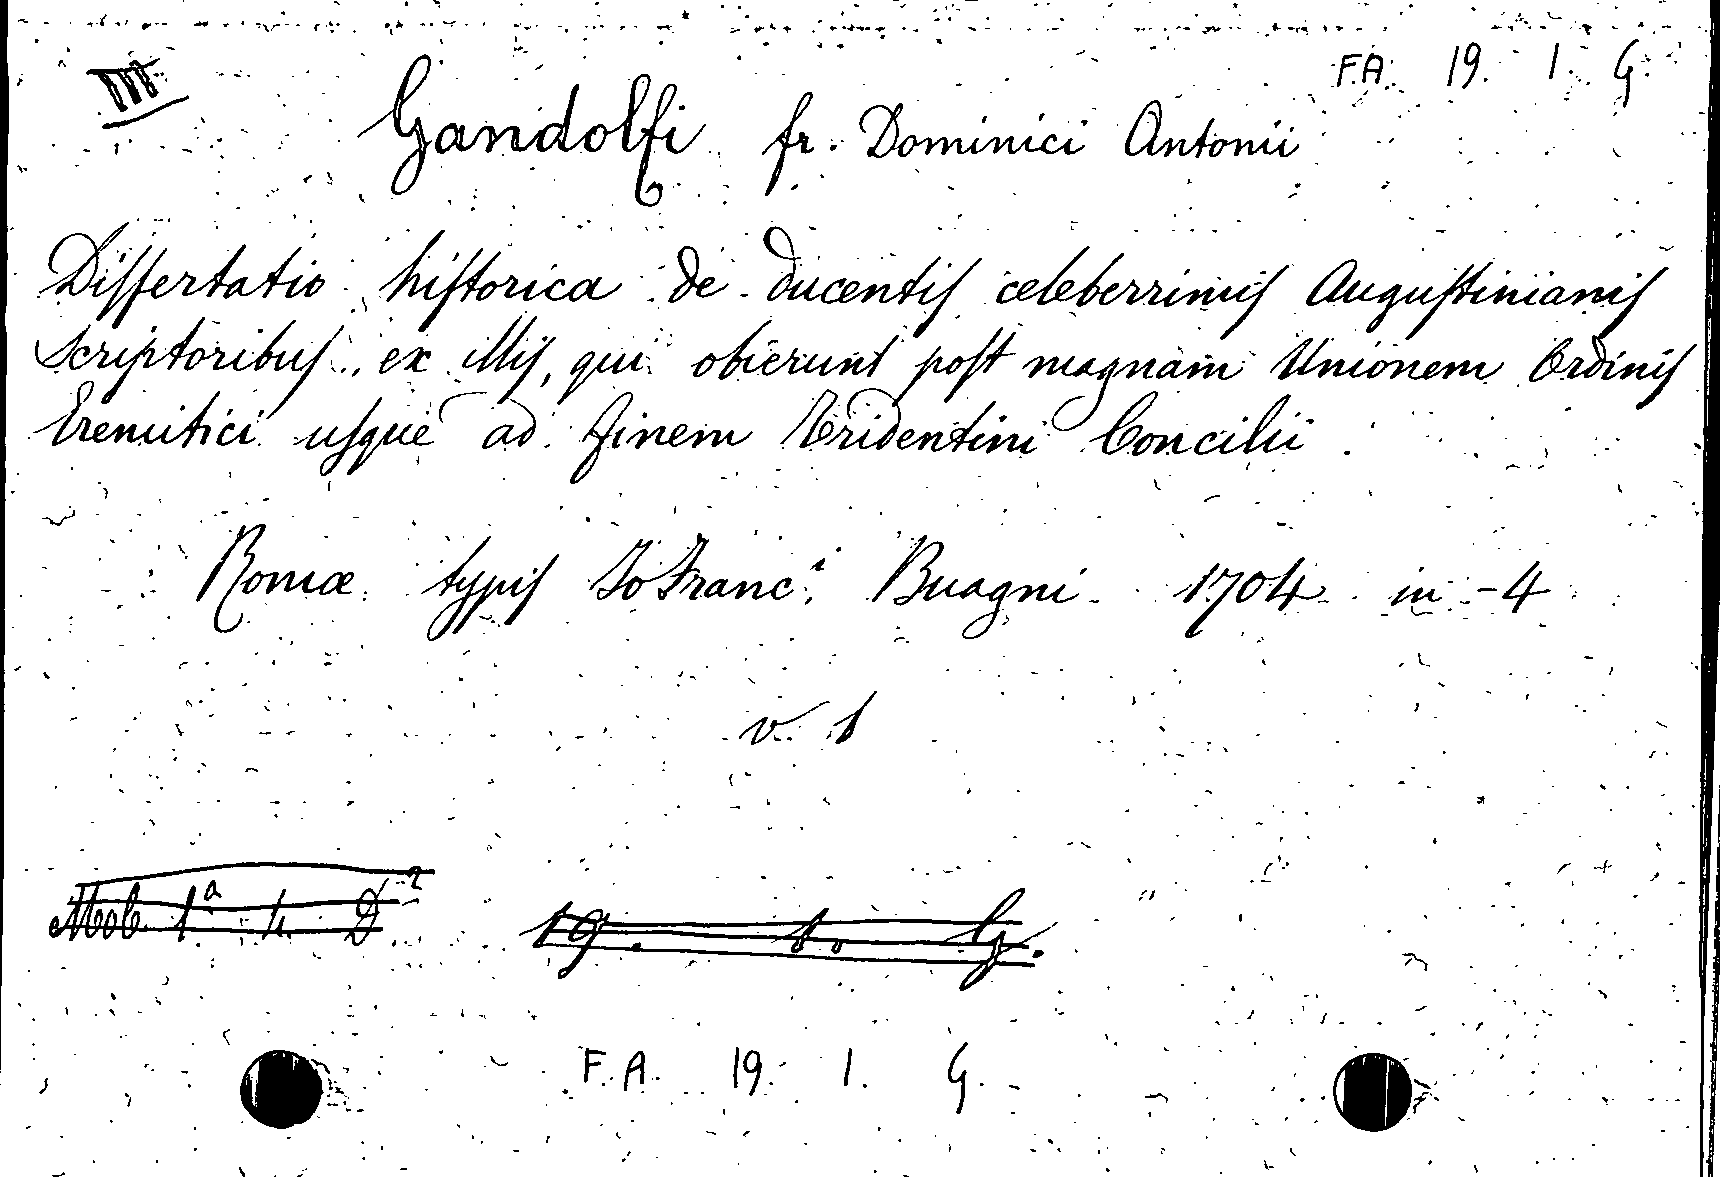 III
F.A. 19. 1. G.
Gandolfi fr. Dominici Antonii
Diſſertatio hiſtorica de ducentiſ celeberrimiſ Auguſtinianiſ
Scriptoribuſ ex illiſ, qui obierunt poſt magnam Unionem Ordiniſ
Eremitici uſque ad finem Tridentini Concilii.
Romæ typiſ Jo Franc.i Buagni 1704 in -4
v. 1
Mob. 1a h. D2
19. 1. G.
F. A. 19. 1. G.